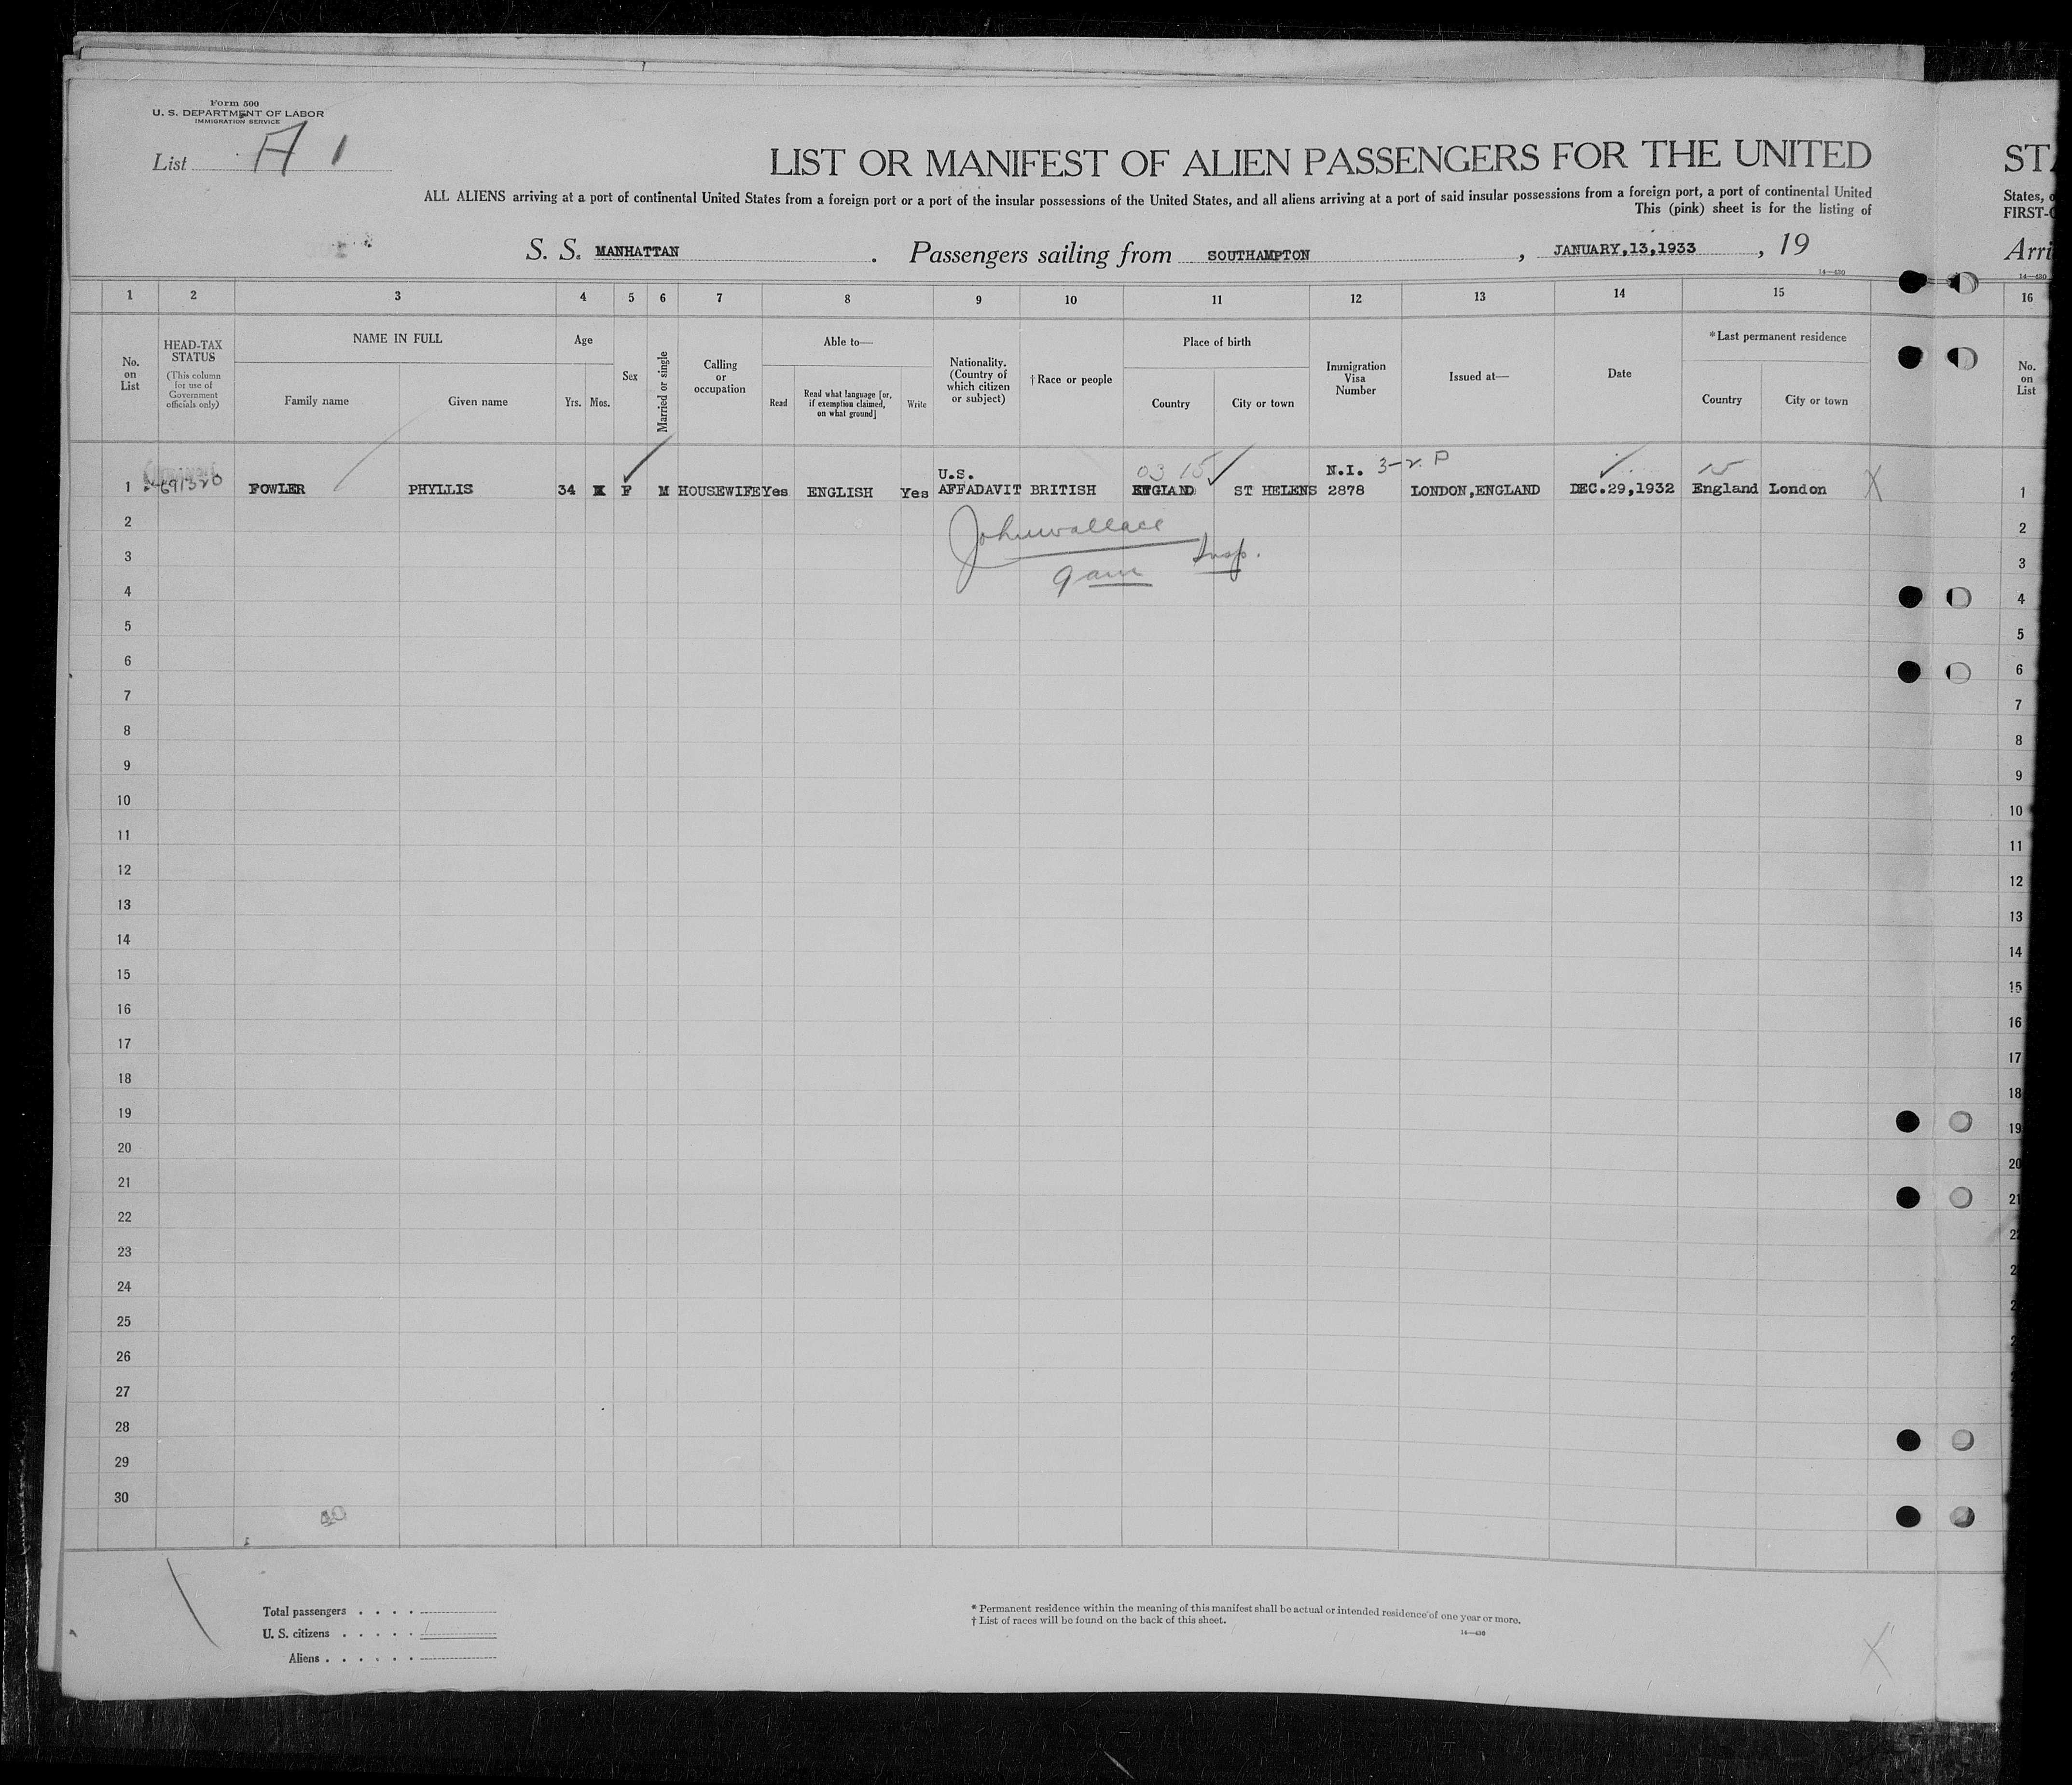 Form 500
U. S. DEPARTMENT OF LABOR
IMMIGRATION SERVICE
List A 1
LIST OR MANIFEST OF ALIEN PASSENGERS FOR THE UNITED
ALL ALIENS arriving at a port of continental United States from a foreign port or a port of the insular possessions of the United States, and all aliens arriving at a port of said insular possessions from a foreign port, a port of continental United
This (pink) sheet is for the listing of
S. S. MANHATTAN . Passengers sailing from SOUTHAMPTON , JANUARY,13,1933 , 19
14—430
1 2 3 4 5 6 7 8 9 10 11 12 13 14 15
No. on List
HEAD-TAX STATUS
(This column for use of Government officials only)
NAME IN FULL
Family name Given name
Age
Yrs. Mos.
Sex
Married or single
Calling or occupation
Able to—
Read
Read what language [or, if exemption claimed, on what ground]
Write
Nationality. (Country of which citizen or subject)
† Race or people
Place of birth
Country City or town
Immigration Visa Number
Issued at—
Date
*Last permanent residence
Country City or town
U.S. 03 15 N.I. 3-2. P
1 691320 FOWLER PHYLLIS 34 F M HOUSEWIFE Yes ENGLISH Yes AFFADAVIT BRITISH ENGLAND ST HELENS 2878 LONDON,ENGLAND DEC.29,1932 England London X
2
John Wallace
3
Insp.
9 am
4
5
6
7
8
9
10
11
12
13
14
15
16
17
18
19
20
21
22
23
24
25
26
27
28
29
30
40
Total passengers . . . .
U. S. citizens . . . . .
Aliens . . . . . .
* Permanent residence within the meaning of this manifest shall be actual or intended residence of one year or more.
† List of races will be found on the back of this sheet.
14—430
X
States, o
FIRST-C
Arri
14—430
16
No. on List
1
2
3
4
5
6
7
8
9
10
11
12
13
14
15
16
17
18
19
20
21